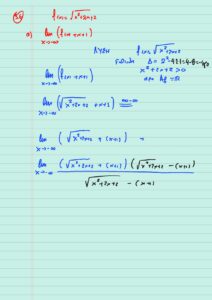 f(x) = √x²+2x+2
a) lim x→-∞ (f(x)+x+1)
ΛΥΣΗ f(x) = √x²+2x+2
Δ = 2²-4·2·1 = 4-8 = -4<0
x²+2x+2 > 0
lim x→-∞ (f(x)+x+1)
lim x→-∞ (√x²+2x+2 +x+1) ∞-∞
lim x→-∞ (√x²+2x+2 + (x+1)) =
lim x→-∞ (√x²+2x+2 + (x+1)) (√x²+2x+2 - (x+1))
√x²+2x+2 - (x+1)